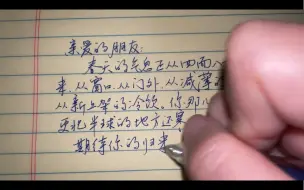 亲爱的朋友:
春天的气息正从四面八
来,从窗口,从门外,从减薄的
从新上架的冷饮,你那儿
更北半球的地方还寒
期待你的归来